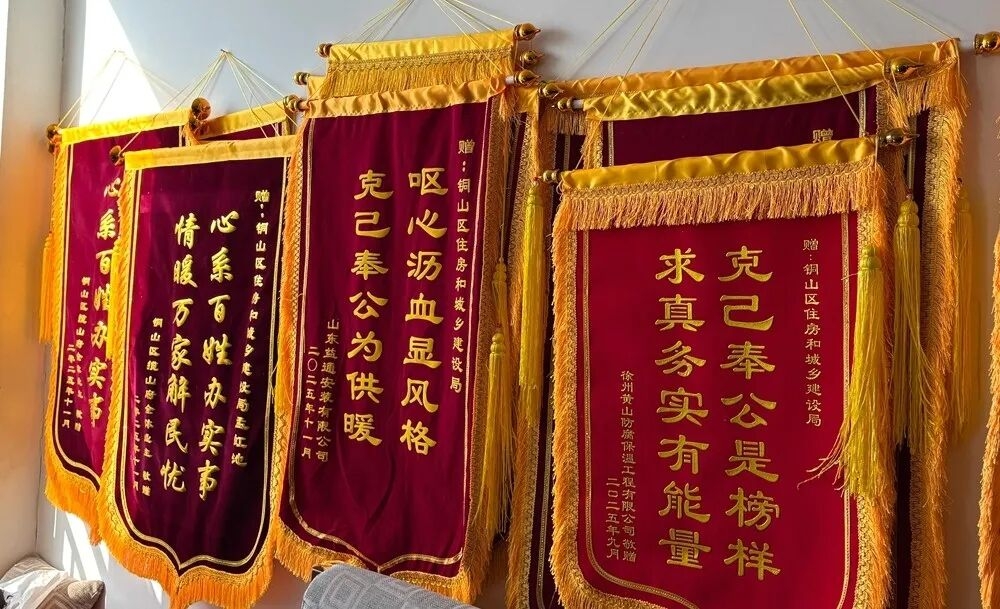 心系百姓办实事
铜山区揽山府全体业主 敬赠
二〇二五年十一月
赠：铜山区住房和城乡建设局
心系百姓办实事
情暖万家解民忧
铜山区揽山府全体业主 敬赠
二〇二五年十一月
赠：铜山区住房和城乡建设局
呕心沥血显风格
克己奉公为供暖
山东益通安装有限公司
二〇二五年十一月
赠
赠：铜山区住房和城乡建设局
克己奉公是榜样
求真务实有能量
徐州黄山防腐保温工程有限公司敬赠
二〇二五年九月